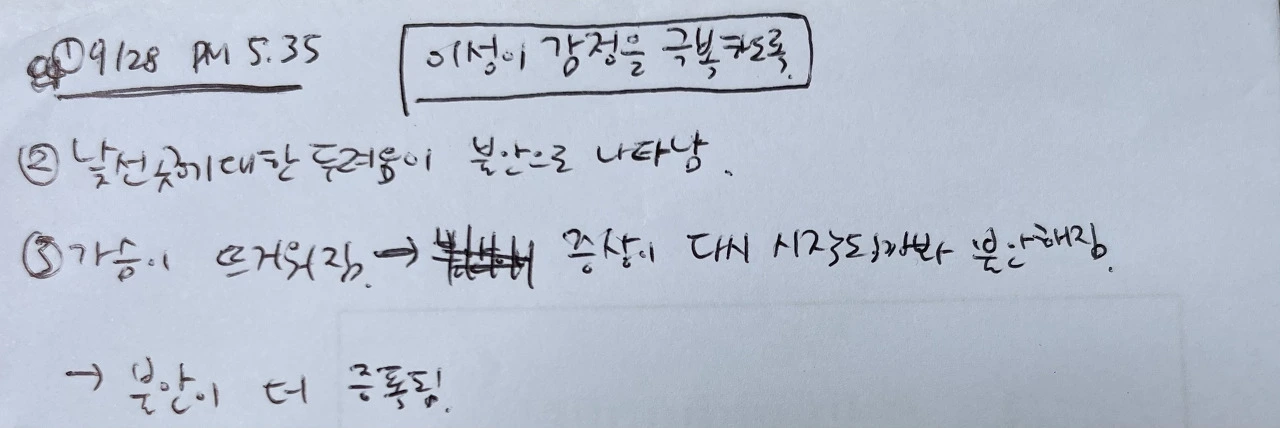 ① 9/28 PM 5.35
이성이 감정을 극복하도록.
② 낯선 곳에 대한 두려움이 불안으로 나타남.
③ 가슴이 뜨거워짐. → 증상이 다시 시작될까봐 불안해짐.
→ 불안이 더 증폭됨.